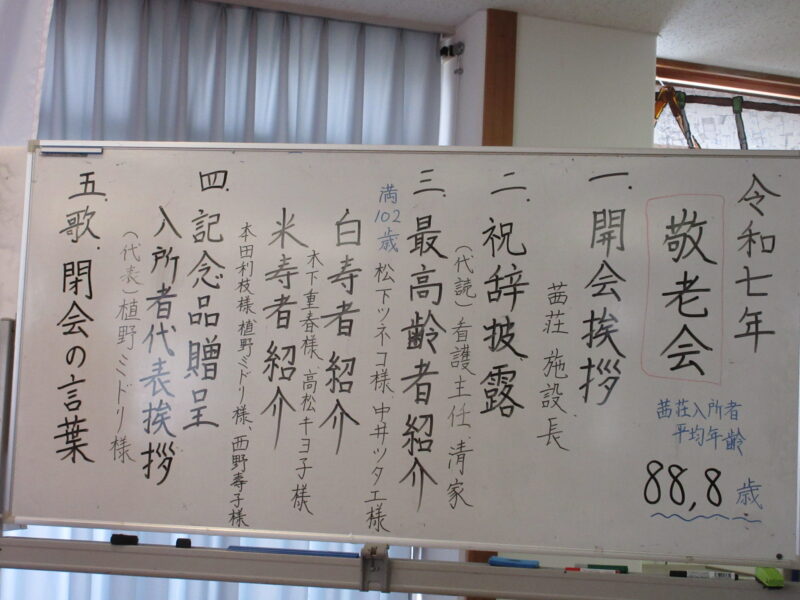 令和七年
敬老会
茜荘入所者
平均年齢
88,8歳
一.開会挨拶
茜荘 施設長
二.祝辞披露
(代読)看護主任 清家
三.最高齢者紹介
満102歳 松下ツネコ様、中井ツタエ様
白寿者紹介
木下重春様、高松キヨ子様
米寿者紹介
本田利枝様、植野ミドリ様、西野寿子様
四.記念品贈呈
入所者代表挨拶
(代表)植野ミドリ様
五.歌.閉会の言葉